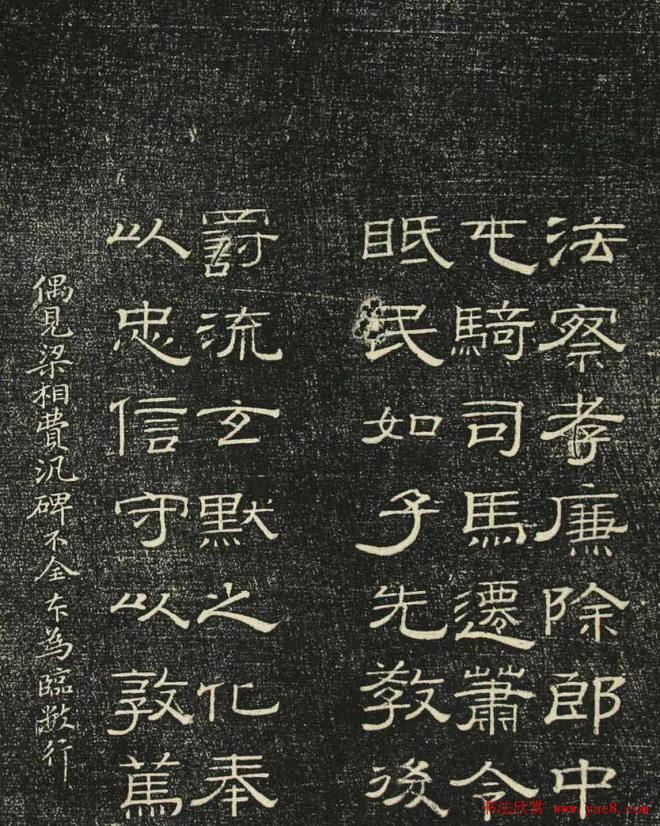 法察孝廉除郎中
屯騎司馬遷蕭令
眂民如子先教後
罸流玄默之化奉
以忠信守以敦篤
偶見梁相費汎碑不全本為臨數行
书法欣赏 www.yac8.com